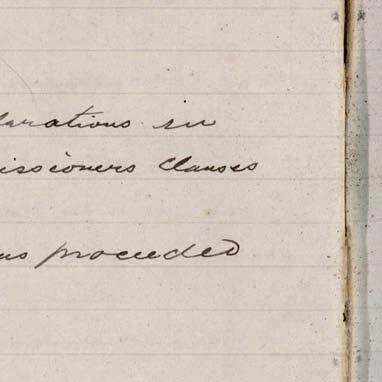 larations in
issioners Clauses
as proceeded